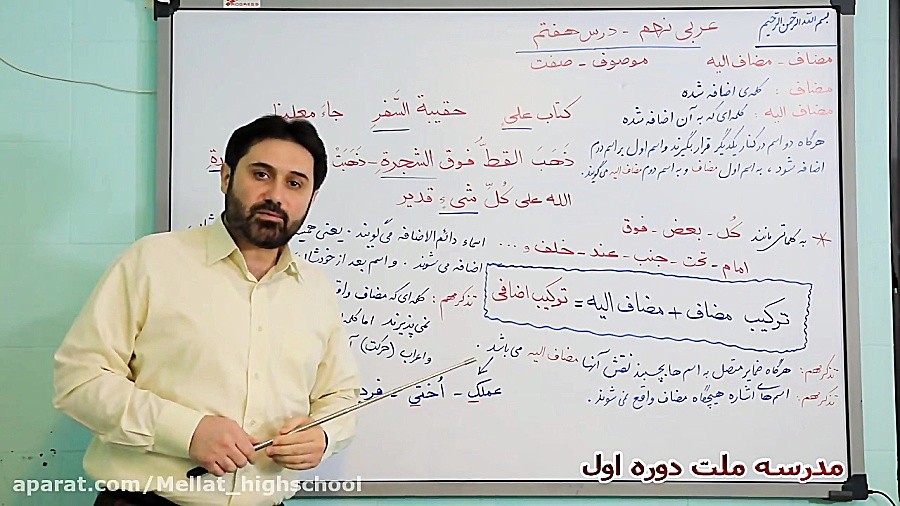 بسم الله الرحمن الرحیم
عربی نهم - درس هفتم
مضاف - مضاف الیه    موصوف - صفت
مضاف : کلمه‌ی اضافه شده
مضاف الیه : کلمه‌ای که به آن اضافه شده
کتابُ علیٍ    حقیبة السَّفَرِ    جاءَ معلمنا
هرگاه دو اسم در کنار یکدیگر قرار بگیرند و اسم اول بر اسم دوم
اضافه شود ، به اسم اول مضاف و به اسم دوم مضاف الیه می‌گویند.
ذَهَبَ القطُّ فوقَ الشجرةِ - ذَهَبَتْ
الله علی کُلِّ شیءٍ قدیر
* به کلماتی مانند کُل - بعض - فوق
امام - تحت - جنب - عند - خلف و ...
اسماء دائم الاضافه می‌گویند . یعنی
اضافه می‌شوند . و اسم بعد از خودشان
ترکیب مضاف + مضاف الیه = ترکیب اضافی
تذکر مهم : کلمه‌ای که مضاف
نمی‌پذیرند اما
و اعراب (حرکت)
تذکر مهم : هرگاه ضمایر متصل به اسم‌ها بچسبند نقش آنها مضاف الیه می‌باشد .
عملکِ - اُختي -
تذکر مهم : اسم‌های اشاره هیچگاه مضاف واقع نمی‌شوند .
مدرسه ملت دوره اول
aparat.com/Mellat_highschool